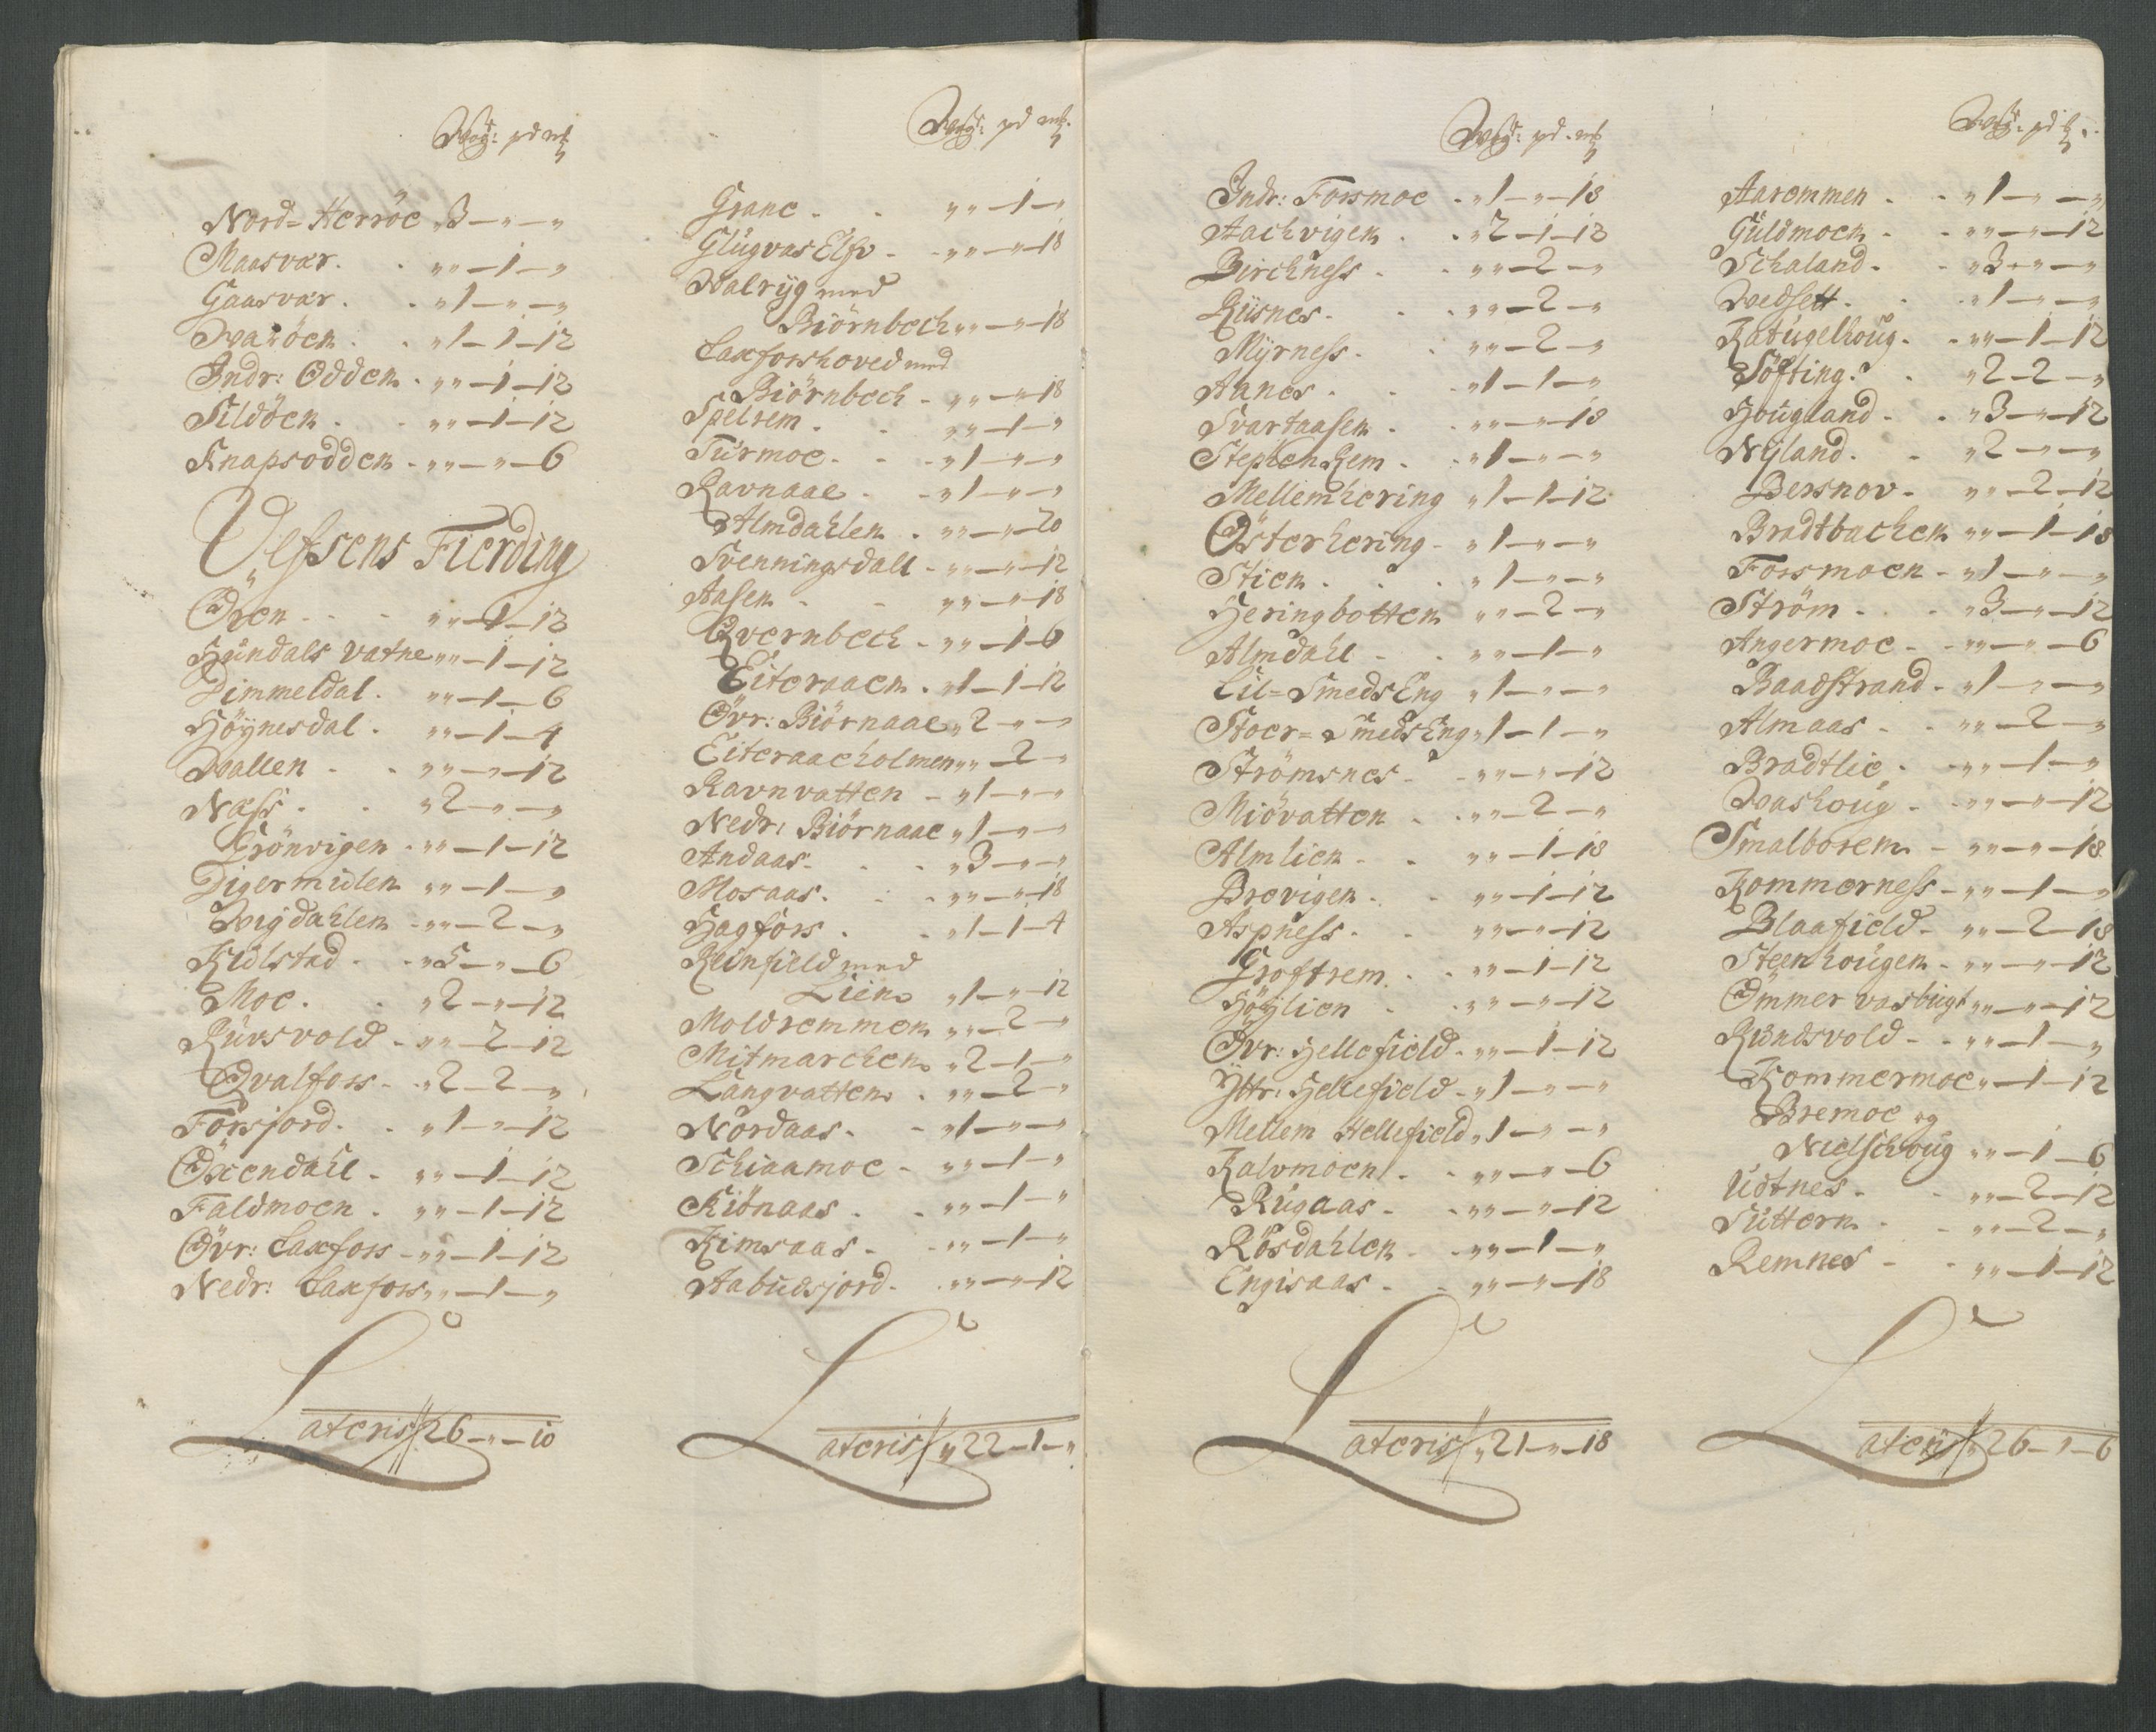 Wog: pd mk
Nord=Herröe „3—„—„
Maasvær. . „„—1—„
Gaasvær. . „1—„—„
Waröen. . „1—1—12
Indr: Odden. „„—1—12
Sildöen. . „„—1—12
Knapsodden. „„—„—6
Vefsens Fierding
Öxen. . . „„—1—12
Hündals vatne „„—1—12
Dimmeldal. „„—1—6
Höynesdal. „„—1—4
Wallen. . „„—„—12
Næss. . „2—„—„
Grönvigen. „„—1—12
Digermülen „„—1—„
Wigdahlen. „„—2—„
Külstad. . „5—„—6
Moe. . „2—„—12
Rürsvold. „„—2—12
Qvalfoss. . „2—2—„
Forsjord. . „1—„—12
Öxendahl. „„—1—12
Faldmoen. „„—1—12
Övr: Laxfoss. „„—1—12
Nedr: Laxfoss „„—1—„
Lateris „26—„—10
Wog: pd mk.
Grane. . „„—1—„
Glügvas Elfv. „„—„—18
Walryg med
Biörnbech „„—„—18
Laxforshoved med
Biörnbech. „„—„—18
Spelrem. . „„—1—„
Türmoe. . „1—„—„
Ravnaae. . „1—„—„
Almdahlen. „„—„—20
Svenningsdall. „„—„—12
Aasen. . „„—„—18
Qvernbech. „„—1—6
Eiteraaen. „1—1—12
Övr: Biörnaae „2—„—„
Eiteraaeholmen „„—2—„
Ravnvatten. „1—„—„
Nedr: Biörnaae „1—„—„
Andaas. . „3—„—„
Mosaas. . „„—„—18
Hagfors. . „1—1—4
Reinfield med
Lien „1—„—12
Moldremmen „„—2—„
Mitmarchen „2—1—„
Langvatten. „„—2—„
Nordaas. . „1—„—„
Schiaamoe. „„—1—„
Kiönaas. . „„—1—„
Kimsaas. . „„—1—„
Aabüesjord. „„—„—12
Lateris „22—1—„
Wog: pd. mk
Indr: Forsmoe. „1—„—18
Aachvigen. . „2—1—12
Birchness. . „„—2—„
Rüsnes. . „„—2—„
Myrness. . „„—2—„
Aanes. . „1—1—„
Svartaasen. . „„—„—18
Stephen Rem. „1—„—„
Mellemhering „1—1—12
Österhering. „1—„—„
Stien. . . „1—„—„
Heringbotten „„—2—„
Almdahl. . „„—1—„
Lil=Smeds Eng „1—„—„
Stoer=Smeds Eng „1—1—„
Strömsnes. „„—„—12
Miövatten. „„—2—„
Almlien. . „„—1—18
Brevigen. . „„—1—12
Aspness. . „„—„—12
Groftrem. . „„—1—12
Höylien. . „„—„—12
Övr: Hellefield. „„—1—12
Yttr: Hellefield. „1—„—„
Mellem Hellefield „1—„—„
Kalvmoen. . „„—„—6
Rügaas. . „„—„—12
Rösdahlen. „„—1—„
Engisaas. . „„—„—18
Lateris „21—„—18
Wog: pd
Aaremmen. . „1—„—„
Güldmoen. . „„—„—12
Schaland. . „3—„—„
Wedsett. . „1—„—„
Katügelhoüg. „„—1—12
Söfting. . „2—2—„
Hoügland. . „3—„—12
Nyland. . „2—„—„
Bersnov. „„—2—12
Bradtbachen „„—1—18
Forsmoen. „1—„—„
Ström. . . „3—„—12
Angermoe. „„—„—6
Baadstrand. „1—„—„
Almaas. . „„—2—„
Bradtlie. „„—1—„
Washoüg. „„—„—12
Smalborem. „„—„—18
Kommerness. „„—1—„
Blaafield. „„—2—18
Steenhoügen. „„—„—12
Ömmer vasbügt „„—„—12
Ründsvold. . „„—1—„
Kommermoe „—1—12
Bremoe og
Nielschoüg „„—1—6
Üdtnes. . „„—2—12
Süttern. . „„—2—„
Remnes. . „„—1—12
Lateris „26—„—6